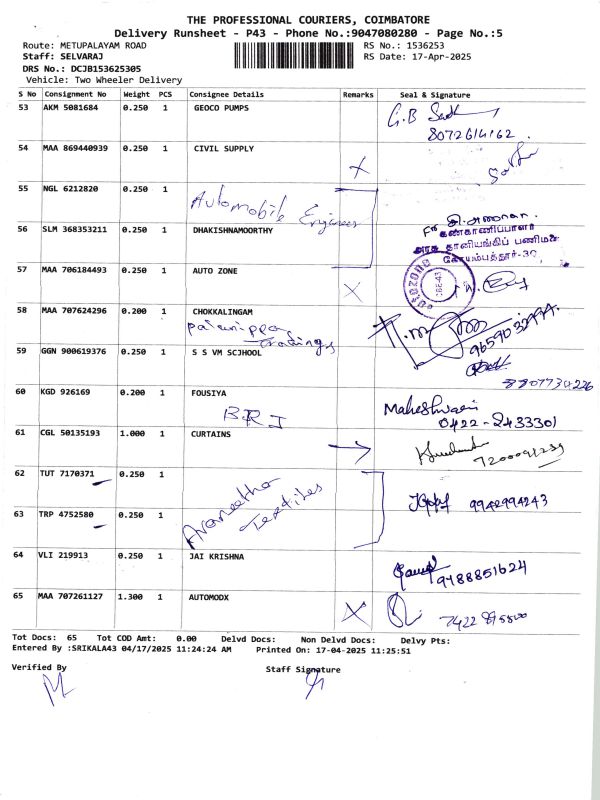 THE PROFESSIONAL COURIERS, COIMBATORE
Delivery Runsheet - P43 - Phone No.:9047080280 - Page No.:5
Route: METUPALAYAM ROAD
RS No.: 1536253
Staff: SELVARAJ
RS Date: 17-Apr-2025
DRS No.: DCJB153625305
Vehicle: Two Wheeler Delivery
S No Consignment No Weight PCS Consignee Details Remarks Seal & Signature
53 AKM 5081684 0.250 1 GEOCO PUMPS
G.B
8072614162
54 MAA 869440939 0.250 1 CIVIL SUPPLY
X
55 NGL 6212820 0.250 1
Automobile Engineer
56 SLM 368353211 0.250 1 DHAKISHNAMOORTHY
கண்காணிப்பாளர்
அரசு தானியங்கிப் பணிமனை
கோயம்புத்தூர்-30
57 MAA 706184493 0.250 1 AUTO ZONE
X
AUTOZONE
CBE-43
58 MAA 707624296 0.200 1 CHOKKALINGAM
tradings
59 GGN 900619376 0.250 1 S S VM SCJHOOL
8807734226
60 KGD 926169 0.200 1 FOUSIYA
BRJ
Maheshwari
0422-2433301
61 CGL 50135193 1.000 1 CURTAINS
62 TUT 7170371 0.250 1
Textiles
9942994243
63 TRP 4752580 0.250 1
64 VLI 219913 0.250 1 JAI KRISHNA
9488851624
65 MAA 707261127 1.300 1 AUTOMODX
X
Tot Docs: 65 Tot COD Amt: 0.00 Delvd Docs: Non Delvd Docs: Delvy Pts:
Entered By :SRIKALA43 04/17/2025 11:24:24 AM Printed On: 17-04-2025 11:25:51
Verified By Staff Signature